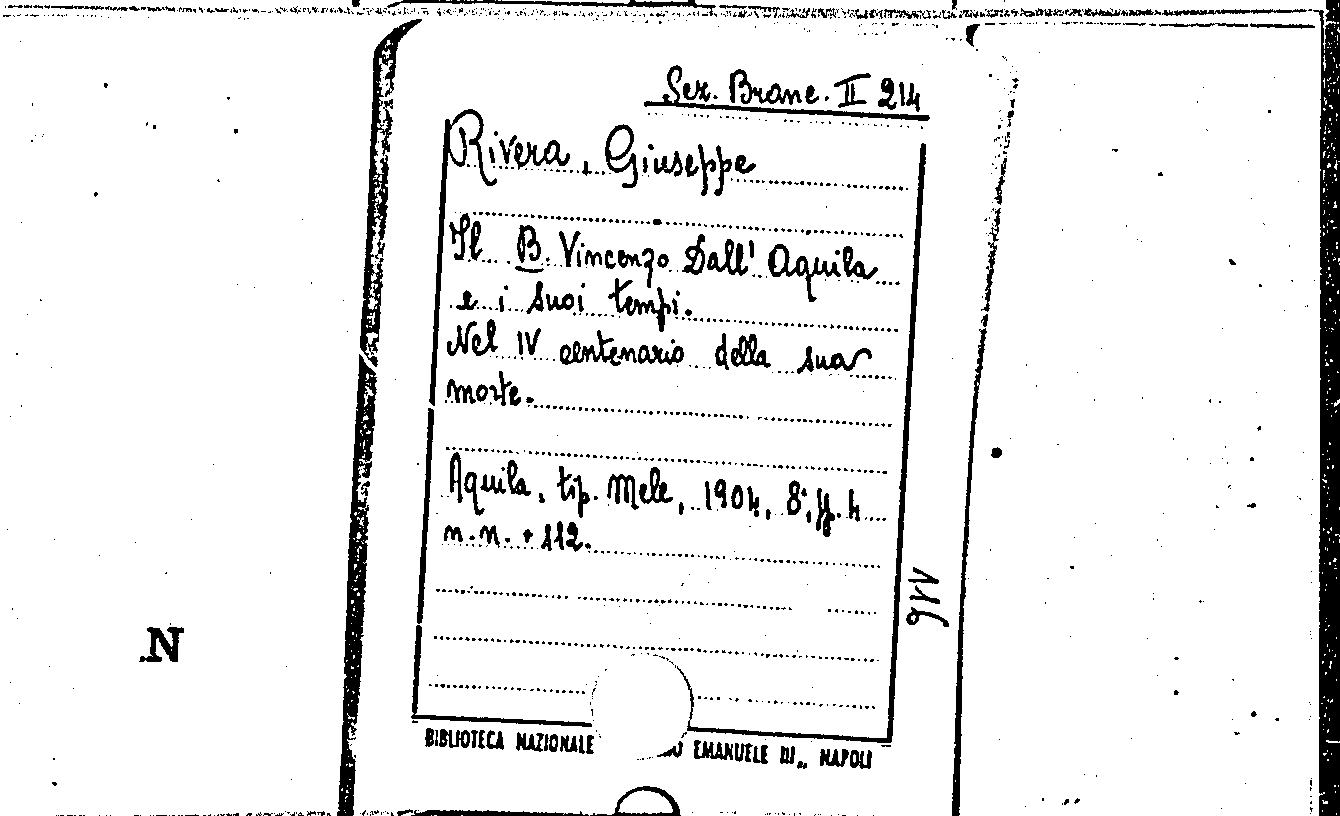 Sez. Branc. II 214
Rivera, Giuseppe
Il B. Vincenzo Dall' Aquila
e i suoi tempi.
Nel IV centenario della sua
morte.
Aquila, tip. Mele, 1904, 8°, pp. 4
n.n. + 112.
N
BIBLIOTECA NAZIONALE EMANUELE III„ NAPOLI